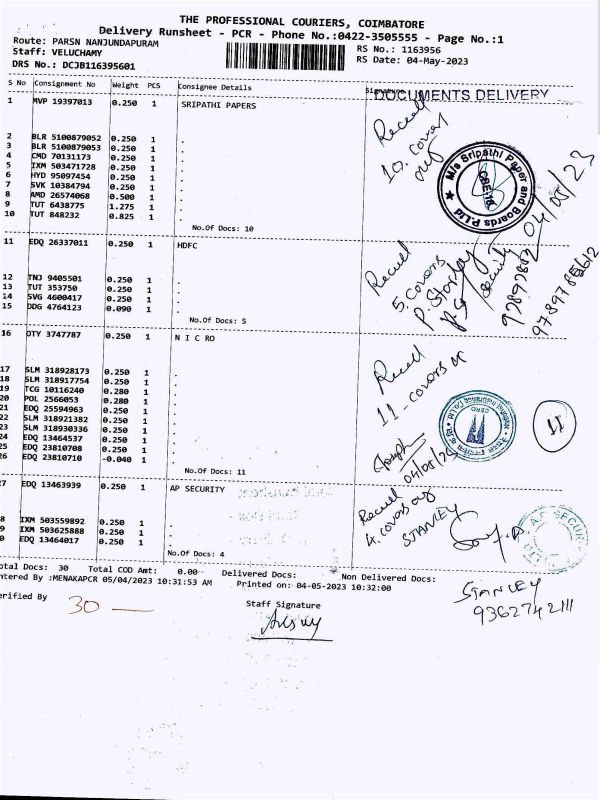 THE PROFESSIONAL COURIERS, COIMBATORE
Delivery Runsheet - PCR - Phone No.:0422-3505555 - Page No.:1
Route: PARSN NANJUNDAPURAM
RS No.: 1163956
Staff: VELUCHAMY
RS Date: 04-May-2023
DRS No.: DCJB116395601
S No Consignment No Weight PCS Consignee Details
DOCUMENTS DELIVERY
1 MVP 19397013 0.250 1 SRIPATHI PAPERS
2 BLR 5100879052 0.250 1 .
3 BLR 5100879053 0.250 1 .
4 CMD 70131173 0.250 1 .
5 IXM 503471728 0.250 1 .
6 HYD 95097454 0.250 1 .
7 SVK 10384794 0.250 1 .
8 AMD 26574068 0.500 1 .
9 TUT 6438775 1.275 1 .
10 TUT 848232 0.825 1 .
No.Of Docs: 10
10. covers
M/s Sripathi Paper and Boards P.Ltd
CBE-18
04/05/23
11 EDQ 26337011 0.250 1 HDFC
12 TNJ 9405501 0.250 1 .
13 TUT 353750 0.250 1 .
14 SVG 4600417 0.250 1 .
15 DDG 4764123 0.090 1 .
No.Of Docs: 5
5. covers
security
16 OTY 3747787 0.250 1 N I C RO
17 SLM 318928173 0.250 1 .
18 SLM 318917754 0.250 1 .
19 TCG 10116240 0.280 1 .
20 POL 2566053 0.280 1 .
21 EDQ 25594963 0.250 1 .
22 SLM 318921382 0.250 1 .
23 SLM 318930336 0.250 1 .
24 EDQ 13464537 0.250 1 .
25 EDQ 23810708 0.250 1 .
26 EDQ 23810710 -0.040 1 .
No.Of Docs: 11
11 - covers
11
27 EDQ 13463939 0.250 1 AP SECURITY
8 IXM 503559892 0.250 1 .
9 IXM 503625888 0.250 1 .
0 EDQ 13464017 0.250 1 .
No.Of Docs: 4
4. covers
STANLEY
otal Docs: 30 Total COD Amt: 0.00 Delivered Docs: Non Delivered Docs:
ntered By :MENAKAPCR 05/04/2023 10:31:53 AM Printed on: 04-05-2023 10:32:00
erified By
30
Staff Signature
STANLEY
9362742111